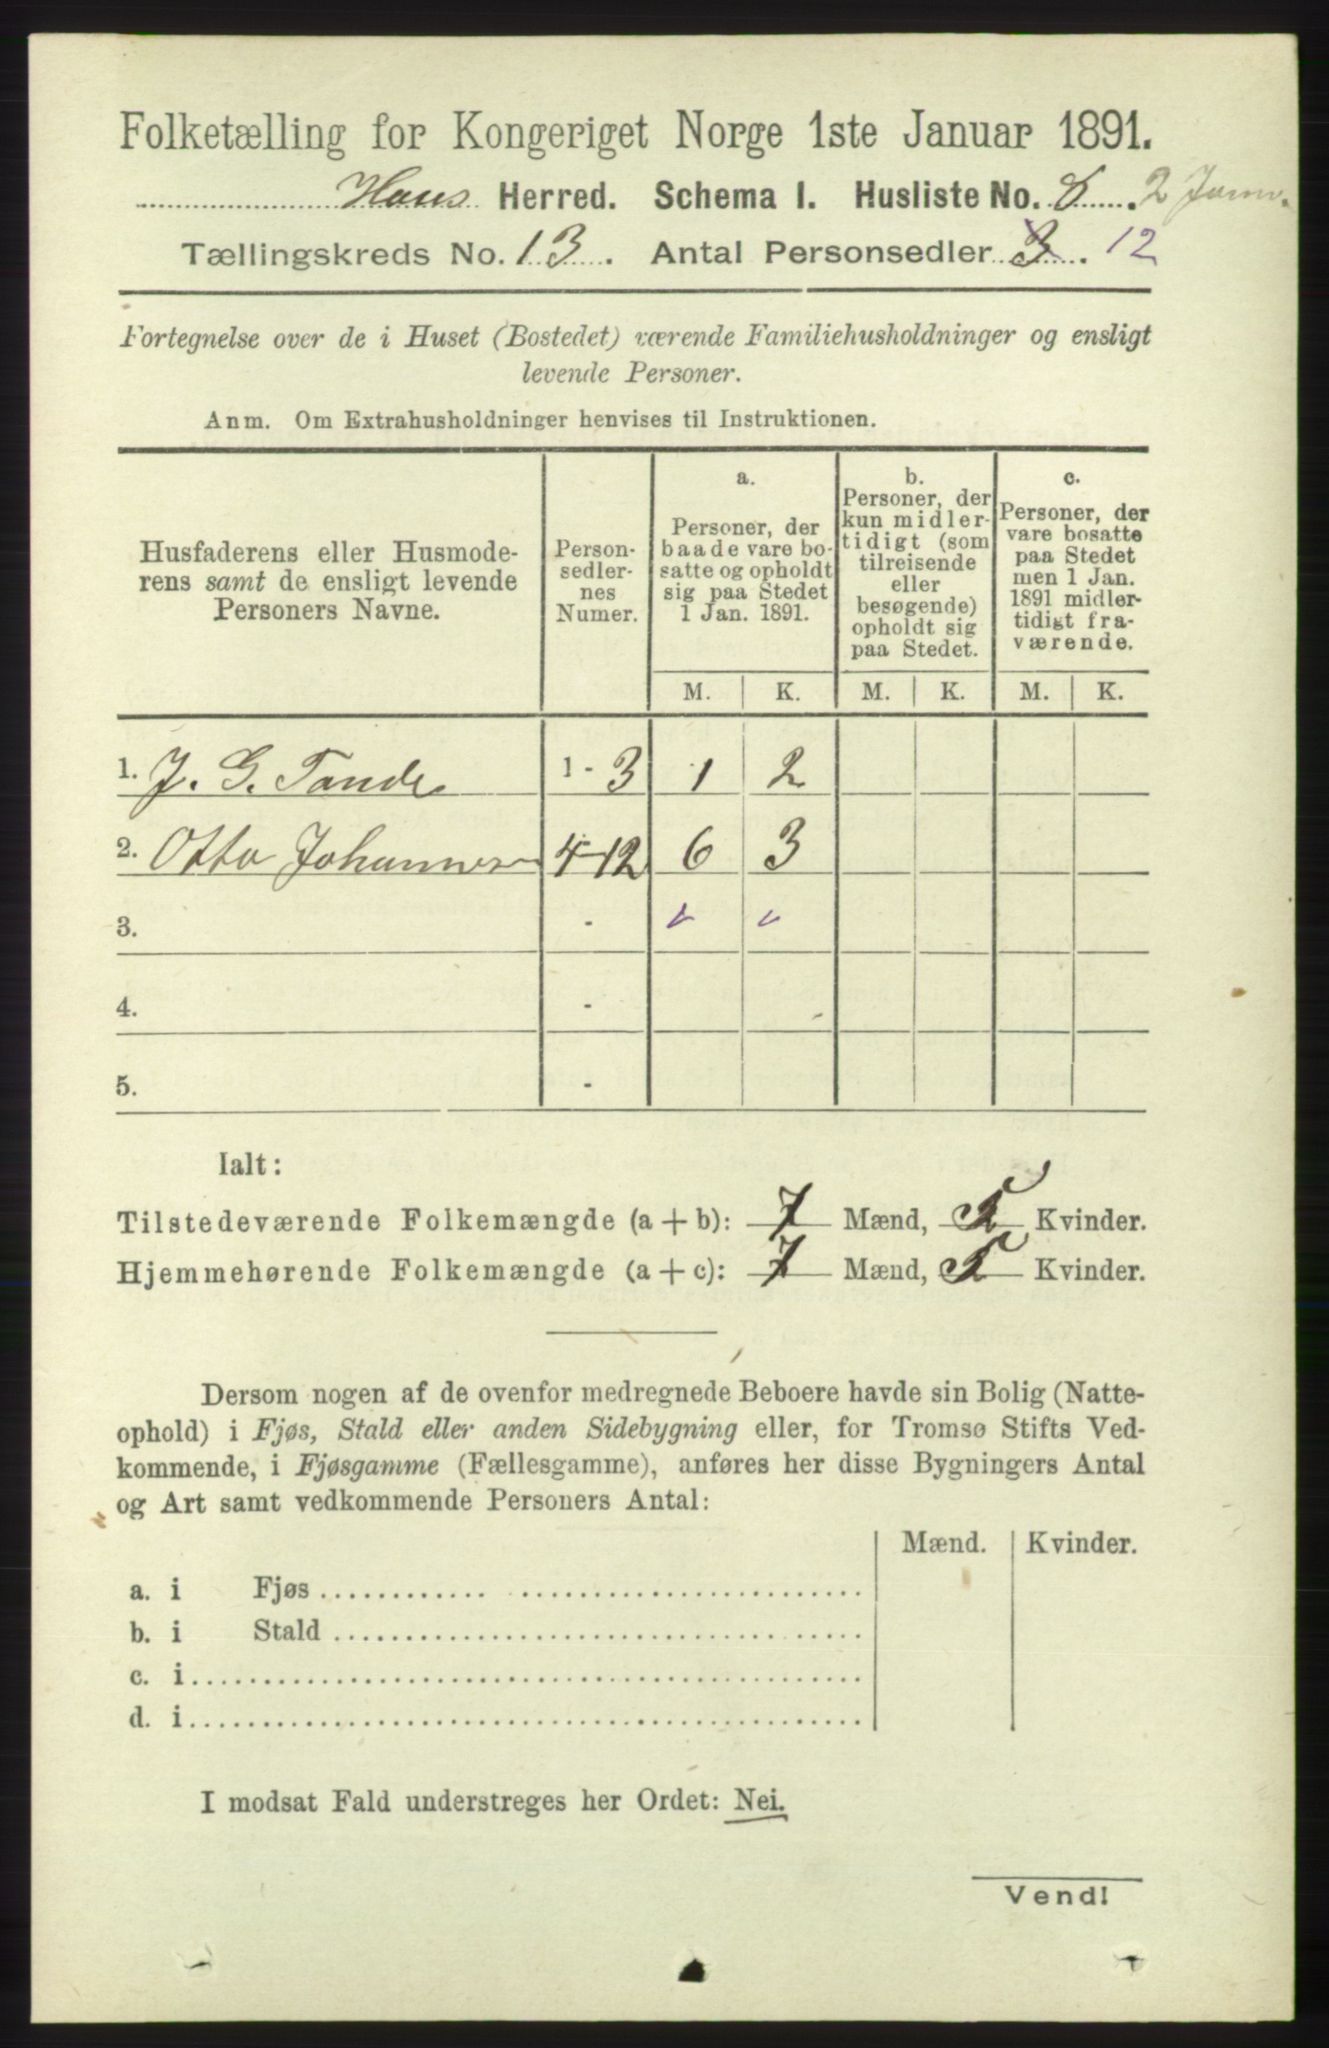 Folketælling for Kongeriget Norge 1ste Januar 1891.
Haus Herred. Schema I. Husliste No. 8. 2
Tællingskreds No. 13. Antal Personsedler 3. 12
Fortegnelse over de i Huset (Bostedet) værende Familiehusholdninger og ensligt
levende Personer.
Anm. Om Extrahusholdninger henvises til Instruktionen.
Husfaderens eller Husmode-
rens samt de ensligt levende
Personers Navne.
Person-
sedler-
nes
Numer.
a.
Personer, der
baade vare bo-
satte og opholdt
sig paa Stedet
1 Jan. 1891.
b.
Personer, der
kun midler-
tidigt (som
tilreisende
eller
besøgende)
opholdt sig
paa Stedet.
c.
Personer, der
vare bosatte
paa Stedet
men 1 Jan.
1891 midler-
tidigt fra-
værende.
M. K. M. K. M. K.
1. J. G. Tande 1 - 3 1 2
2. Otto Johannes 4-12 6 3
3. -
4. -
5. -
Ialt:
Tilstedeværende Folkemængde (a + b): 7 Mænd, 5 Kvinder.
Hjemmehørende Folkemængde (a + c): 7 Mænd, 5 Kvinder.
Dersom nogen af de ovenfor medregnede Beboere havde sin Bolig (Natte-
ophold) i Fjøs, Stald eller anden Sidebygning eller, for Tromsø Stifts Ved-
kommende, i Fjøsgamme (Fællesgamme), anføres her disse Bygningers Antal
og Art samt vedkommende Personers Antal:
Mænd. Kvinder.
a. i Fjøs
b. i Stald
c. i
d. i
I modsat Fald understreges her Ordet: Nei.
Vend!